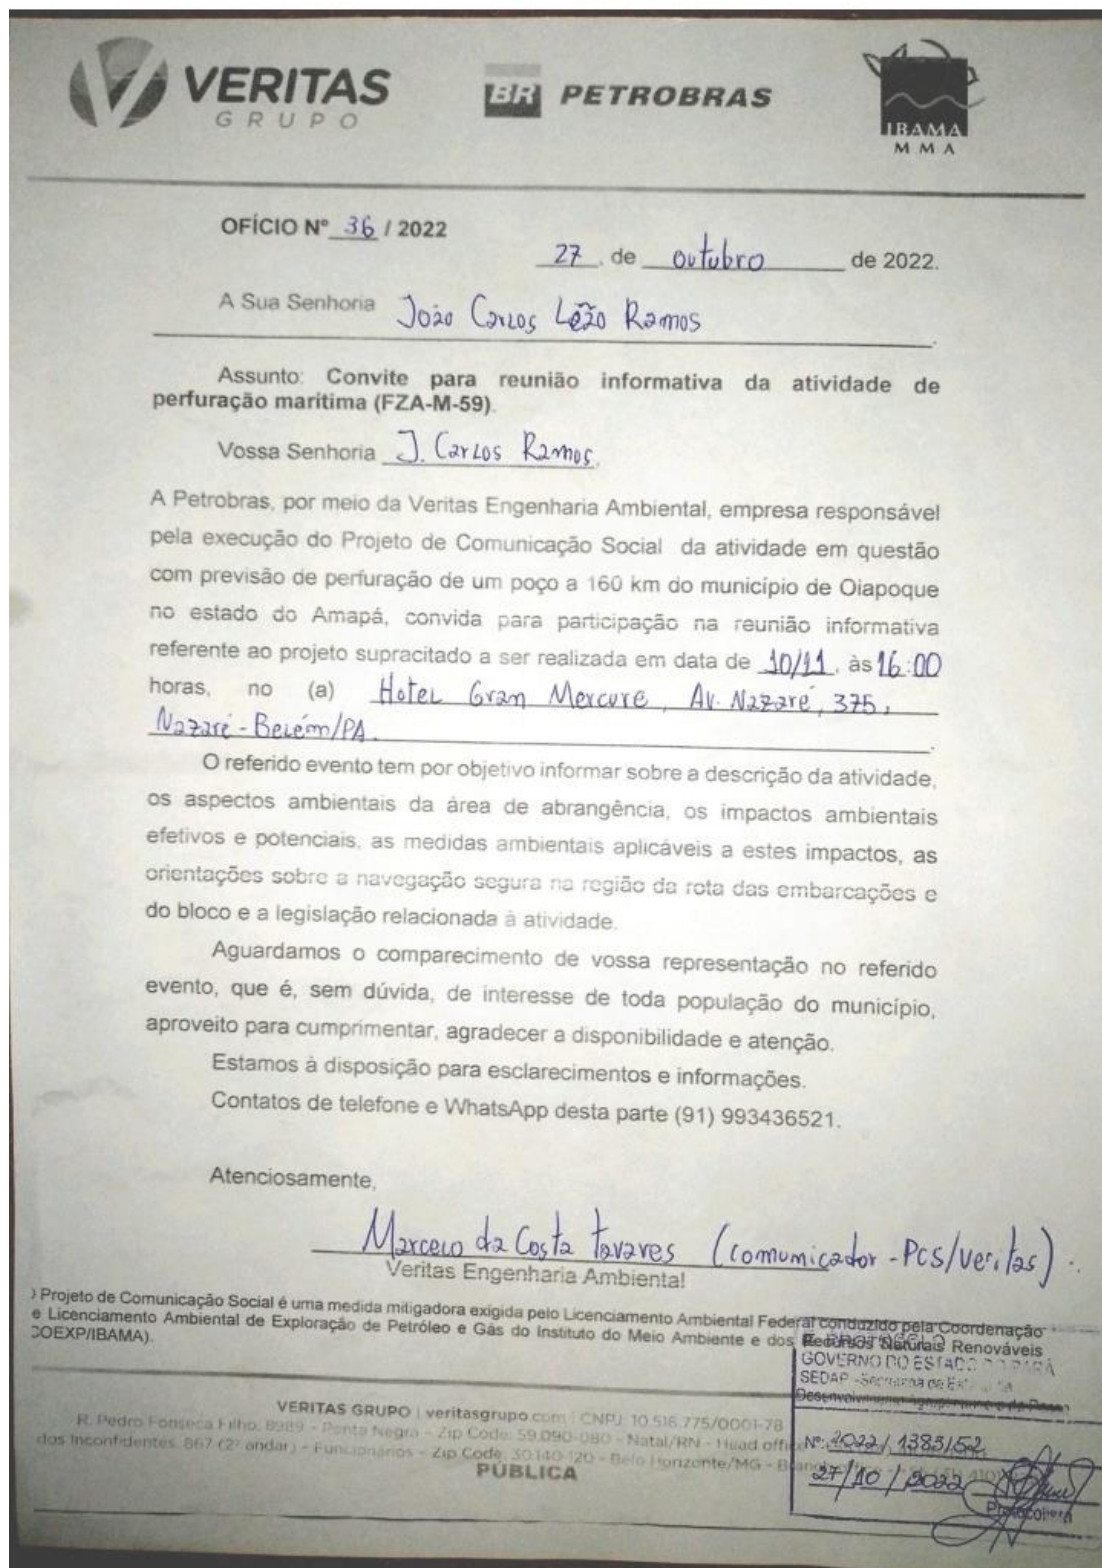 VERITAS
GRUPO
BR PETROBRAS
IBAMA
MMA
OFÍCIO Nº 36 / 2022
27 de outubro de 2022.
A Sua Senhoria João Carlos Leão Ramos
Assunto: Convite para reunião informativa da atividade de
perfuração marítima (FZA-M-59).
Vossa Senhoria J. Carlos Ramos,
A Petrobras, por meio da Veritas Engenharia Ambiental, empresa responsável
pela execução do Projeto de Comunicação Social da atividade em questão
com previsão de perfuração de um poço a 160 km do município de Oiapoque
no estado do Amapá, convida para participação na reunião informativa
referente ao projeto supracitado a ser realizada em data de 10/11, às 16:00
horas, no (a) Hotel Gram Mercure, Av. Nazaré, 375,
Nazaré - Belém/PA.
O referido evento tem por objetivo informar sobre a descrição da atividade,
os aspectos ambientais da área de abrangência, os impactos ambientais
efetivos e potenciais, as medidas ambientais aplicáveis a estes impactos, as
orientações sobre a navegação segura na região da rota das embarcações e
do bloco e a legislação relacionada à atividade.
Aguardamos o comparecimento de vossa representação no referido
evento, que é, sem dúvida, de interesse de toda população do município,
aproveito para cumprimentar, agradecer a disponibilidade e atenção.
Estamos à disposição para esclarecimentos e informações.
Contatos de telefone e WhatsApp desta parte (91) 993436521.
Atenciosamente,
Marcelo da Costa Tavares (comunicador - PCS/Veritas).
Veritas Engenharia Ambiental
Projeto de Comunicação Social é uma medida mitigadora exigida pelo Licenciamento Ambiental Federal conduzido pela Coordenação
e Licenciamento Ambiental de Exploração de Petróleo e Gás do Instituto do Meio Ambiente e dos Recursos Naturais Renováveis
COEXP/IBAMA).
PROTOCOLO
GOVERNO DO ESTADO DO PARÁ
SEDAP
VERITAS GRUPO | veritasgrupo.com | CNPJ: 10.516.775/0001-78
R. Pedro Fonseca Filho, 8989 - Ponta Negra - Zip Code: 59.090-080 - Natal/RN - Head
dos Inconfidentes, 867 (2º andar) - Funcionários - Zip Code: 30.140-120 - Belo Horizonte/MG
PÚBLICA
Nº: 2022/1383152
27/10/2022